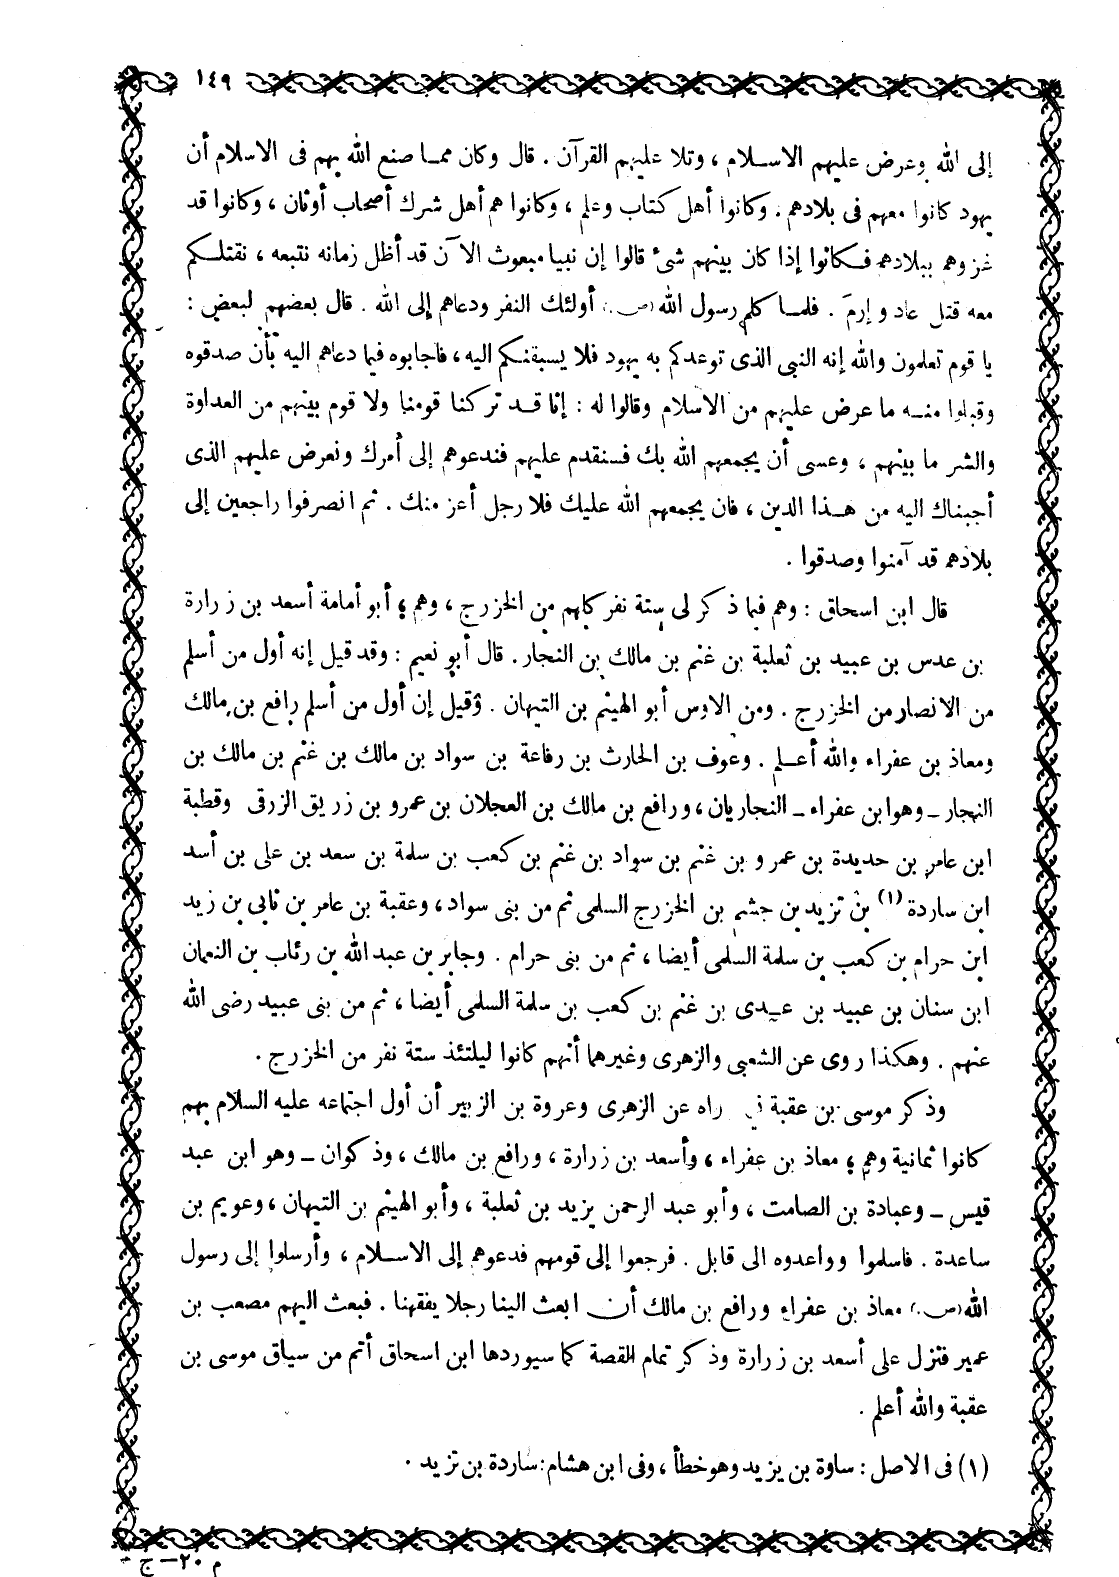 ١٤٩
إلى الله وعرض عليهم الاسلام ، وتلا عليهم القرآن . قال وكان مما صنع الله بهم فى الاسلام أن
يهود كانوا معهم فى بلادهم . وكانوا أهل كتاب وعلم ، وكانوا هم أهل شرك أصحاب أوثان ، وكانوا قد
غزوهم ببلادهم فكانوا إذا كان بينهم شئ قالوا إن نبيا مبعوث الآن قد أظل زمانه نتبعه ، نقتلكم
معه قتل عاد وإرم . فلما كلم رسول الله (ص) أولئك النفر ودعاهم إلى الله . قال بعضهم لبعض :
يا قوم تعلمون والله إنه النبى الذى توعدكم به يهود فلا يسبقنكم اليه ، فاجابوه فيما دعاهم اليه بأن صدقوه
وقبلوا منه ما عرض عليهم من الاسلام وقالوا له : إنا قد تركنا قومنا ولا قوم بينهم من العداوة
والشر ما بينهم ، وعسى أن يجمعهم الله بك فسنقدم عليهم فندعوهم إلى أمرك ونعرض عليهم الذى
أجبناك اليه من هذا الدين ، فان يجمعهم الله عليك فلا رجل أعز منك . ثم انصرفوا راجعين إلى
بلادهم قد آمنوا وصدقوا .
قال ابن اسحاق : وهم فيما ذكر لى ستة نفر كلهم من الخزرج ، وهم ؛ أبو أمامة أسعد بن زرارة
بن عدس بن عبيد بن ثعلبة بن غنم بن مالك بن النجار . قال أبو نعيم : وقد قيل إنه أول من أسلم
من الانصار من الخزرج . ومن الاوس أبو الهيثم بن التيهان . وقيل إن أول من أسلم رافع بن مالك
ومعاذ بن عفراء والله أعلم . وعوف بن الحارث بن رفاعة بن سواد بن مالك بن غنم بن مالك بن
النجار ـ وهو ابن عفراء ـ النجاريان ، ورافع بن مالك بن العجلان بن عمرو بن زريق الزرقى وقطبة
ابن عامر بن حديدة بن عمرو بن غنم بن سواد بن غنم بن كعب بن سلمة بن سعد بن على بن أسد
ابن ساردة (١) بن تزيد بن جشم بن الخزرج السلمى ثم من بنى سواد ، وعقبة بن عامر بن نابى بن زيد
ابن حرام بن كعب بن سلمة السلمى أيضا ، ثم من بنى حرام . وجابر بن عبد الله بن رئاب بن النعمان
ابن سنان بن عبيد بن عدى بن غنم بن كعب بن سلمة السلمى أيضا ، ثم من بنى عبيد رضى الله
عنهم . وهكذا روى عن الشعبى والزهرى وغيرهما أنهم كانوا ليلتئذ ستة نفر من الخزرج .
وذكر موسى بن عقبة عن الزهرى وعروة بن الزبير أن أول اجتماعه عليه السلام بهم
كانوا ثمانية وهم ؛ معاذ بن عفراء ، وأسعد بن زرارة ، ورافع بن مالك ، وذكوان ـ وهو ابن عبد
قيس ـ وعبادة بن الصامت ، وأبو عبد الرحمن يزيد بن ثعلبة ، وأبو الهيثم بن التيهان ، وعويم بن
ساعدة . فاسلموا وواعدوه الى قابل . فرجعوا إلى قومهم فدعوهم إلى الاسلام ، وأرسلوا إلى رسول
الله (ص) معاذ بن عفراء ورافع بن مالك أن ابعث الينا رجلا يفقهنا . فبعث اليهم مصعب بن
عمير فنزل على أسعد بن زرارة وذكر تمام القصة كما سيوردها ابن اسحاق أتم من سياق موسى بن
عقبة والله أعلم .
(١) فى الاصل : ساوة بن يزيد وهو خطأ ، وفى ابن هشام : ساردة بن تزيد .
م ٢٠ ـ ج